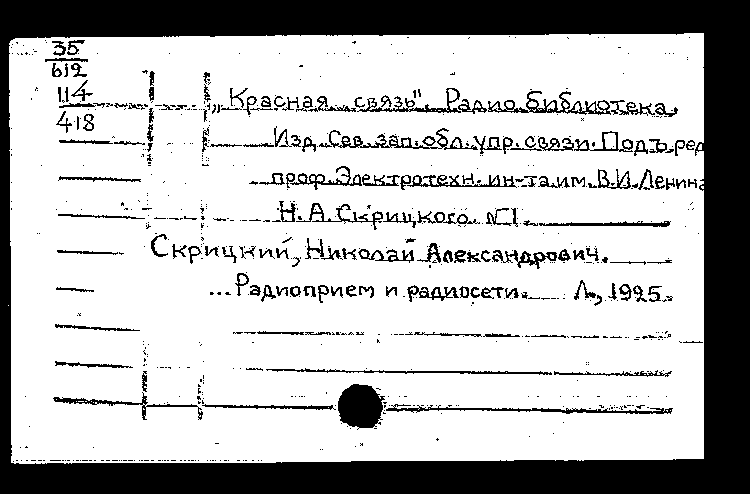 35
612
114
418
"Красная связь". Радио библиотека.
Изд. Сев. зап. обл. упр. связи. Подъ ред
проф. Электротехн. ин-та им. В.И. Ленина
Н. А. Скрицкого. №1.
Скрицкий, Николай Александрович.
...Радиоприем и радиосети. Л., 1925.